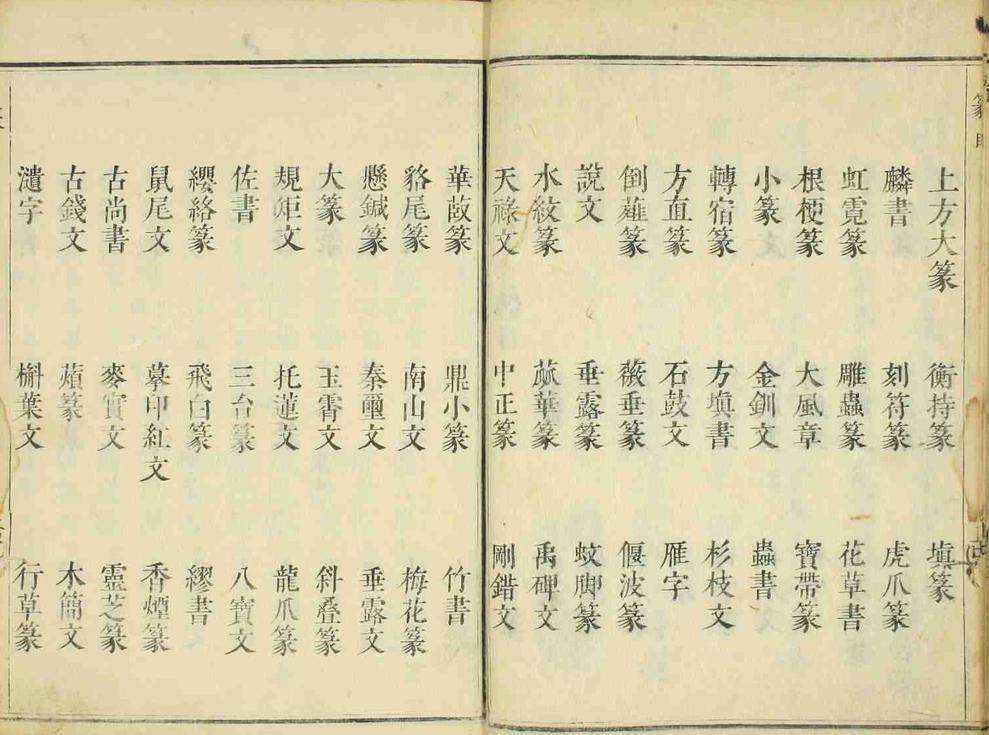 上方大篆 衡持篆 塡篆
麟書 刻符篆 虎爪篆
虹霓篆 雕蟲篆 花草書
根梗篆 大風章 寶帶篆
小篆 金釧文 蟲書
轉宿篆 方塡書 杉枝文
方直篆 石鼓文 雁字
倒薤篆 薇垂篆 偃波篆
說文 垂露篆 蚊脚篆
水紋篆 蓏華篆 禹碑文
天祿文 中正篆 剛錯文
華鼓篆 鼎小篆 竹書
貉尾篆 南山文 梅花篆
懸鍼篆 秦璽文 垂露文
大篆 玉霄文 斜疊篆
規矩文 托蓮文 龍爪篆
佐書 三台篆 八寶文
纓絡篆 飛白篆 繆書
鼠尾文 摹印紅文 香煙篆
古尚書 麥實文 靈芝篆
古錢文 篆 木簡文
字 槲葉文 行草篆